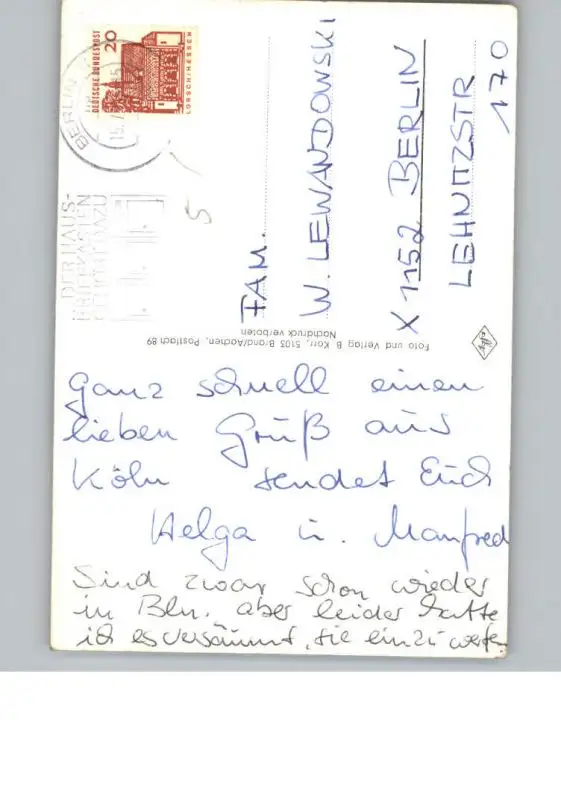 20
DEUTSCHE BUNDESPOST
LORSCH/HESSEN
BERLIN
DER HAUS-
BRIEFKASTEN
GEHÖRT DAZU
5
FAM.
W. LEWANDOWSKI
X 1152 BERLIN
LEHNITZSTR
170
Foto und Verlag B. Korr, 5103 Brand/Aachen, Postfach 89
Nachdruck verboten
Ganz schnell einen
lieben Gruß aus
Köln sendet Euch
Helga u. Manfred
Sind zwar schon wieder
in Bln. aber leider hatte
ich es versäumt, sie einzuwerfen